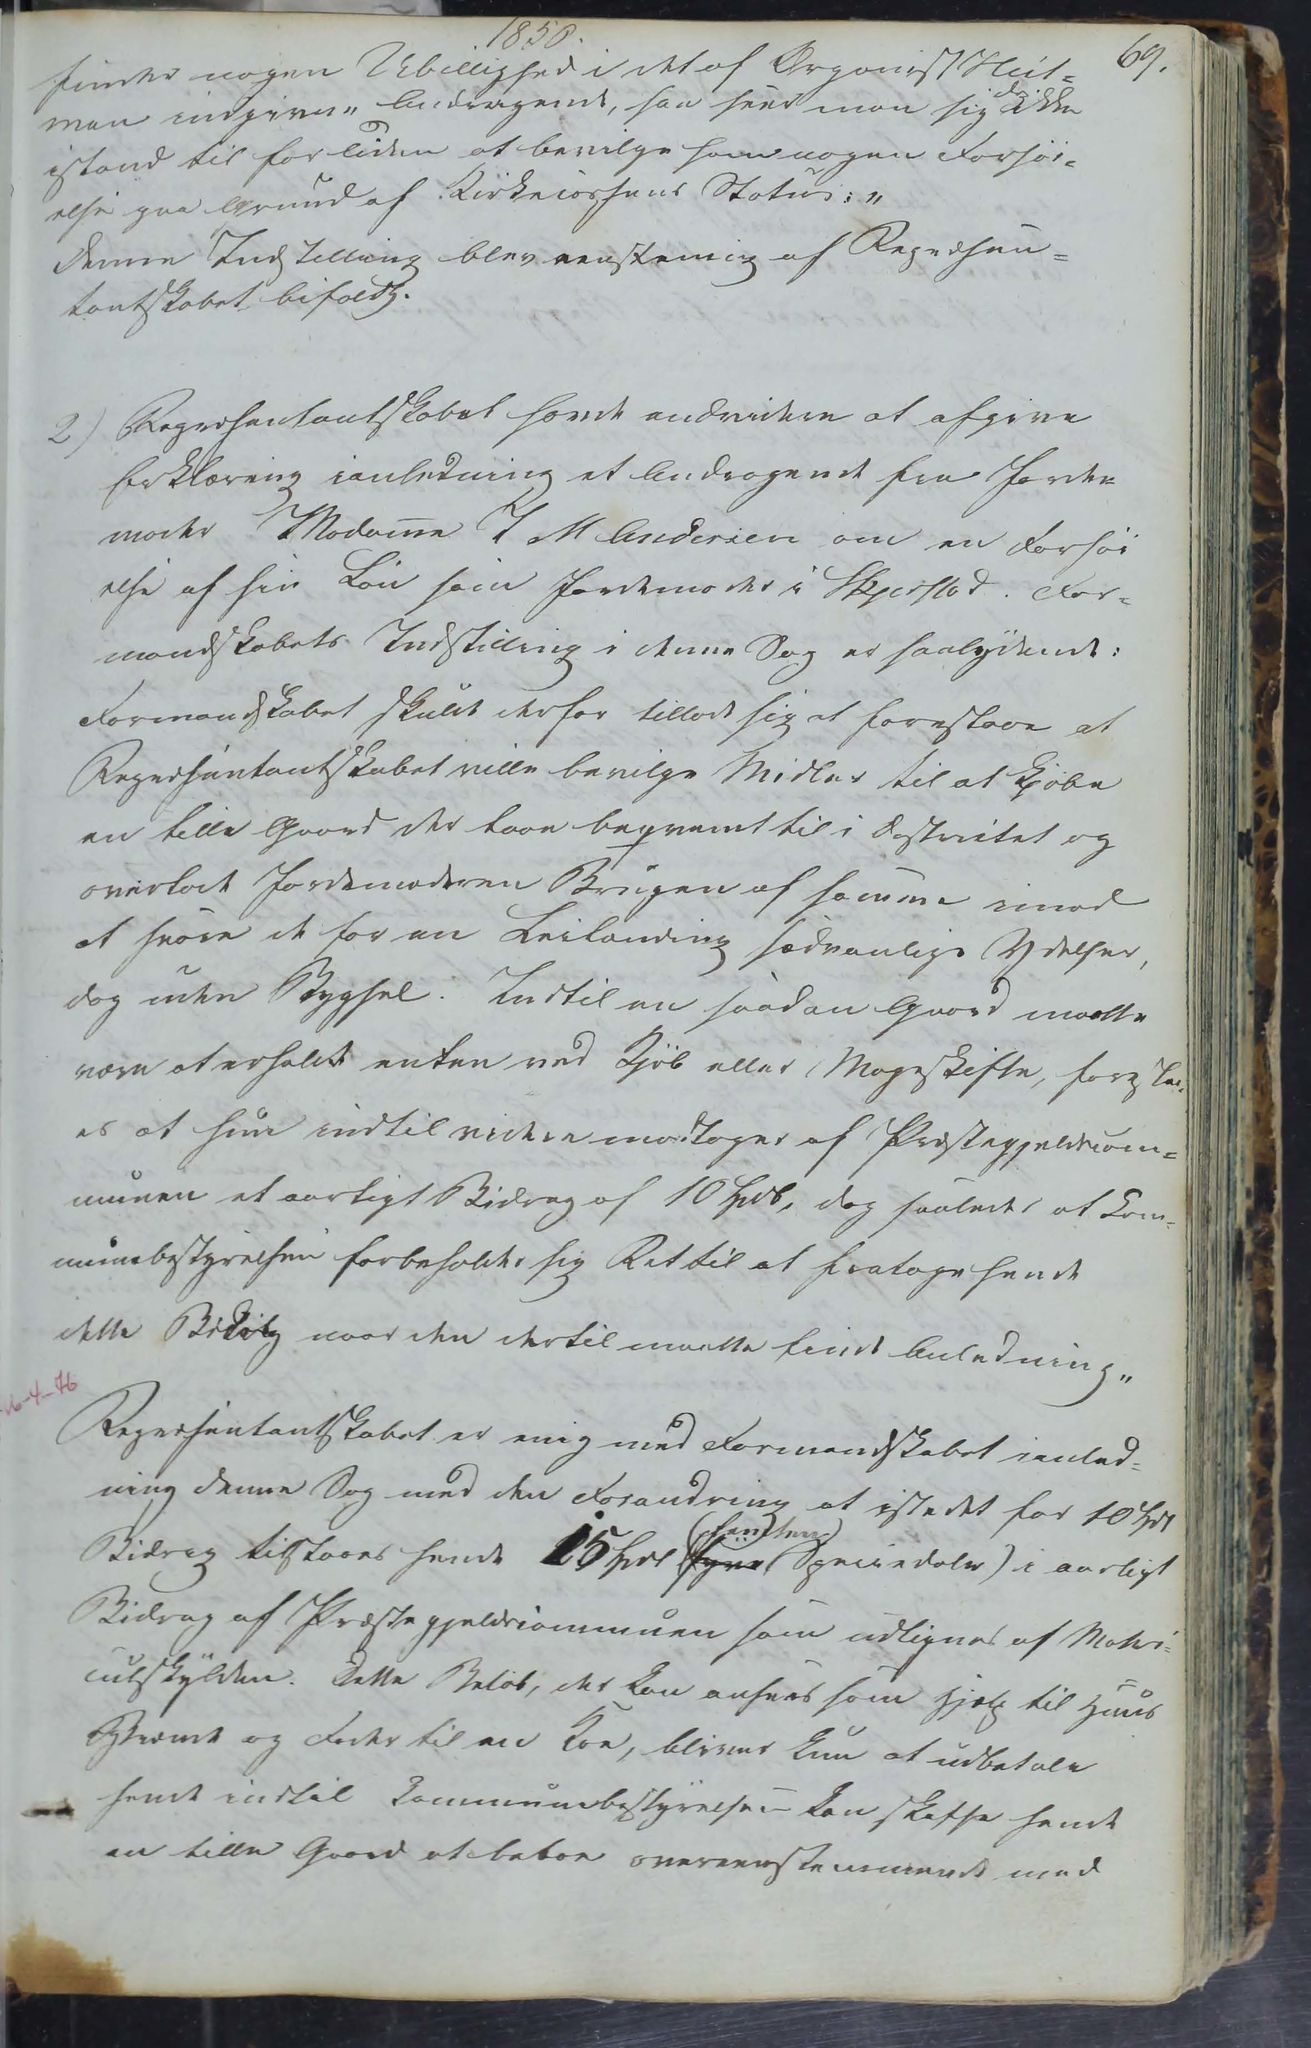 1858.
69.
finder nogen Ubillighed i det af Organist Heit-
man indgivne Andragende, saa seer man sig dog ikke
istand til for tiden at bevilge ham nogen Forhøi-
else paa Grund af Kirkecassens Status:"
Denne Indstilling blev eenstemig af Repræsen-
tantskabet bifaldt.
2) Repræsentantskabet havde endvidere at afgive
Erklæring ianledning et Andragende fra Jorde-
moder Madame I M Andersen om en Forhøi
else af sin Løn som Jordemoder i Skjerstad. For-
mandskabets Indstilling i denne Sag er saalydende:
Formandskabet skulde derfor tillade sig at foreslaae at
Repræsentantskabet ville bevilge Midler til at kjøbe
en lille Gaard der laae beqvemt til i Districtet og
overlod Jordemoderen Brugen af samme imod
at svare de for en Leilænding sædvanlige Ydelser,
dog uden Bygsel. Indtil en saadan Gaard maatte
være at erholde enten ved Kjøb eller Mageskifte, foreslaa-
es at hun indtil videre modtager af Præstegjeldscom-
munen et aarligt Bidrag af 10 Spd, dog saaledes at Com-
munebestyrelsen forbeholder sig Ret til at fratage hende
dette Bidrag naar den dertil maatte finde Anledning"
16-4-76
Repræsentantskabet er enig med Formandskabet ianled-
ning denne Sag med den Forandring at istedet for 10 Spd
Bidrag tilstaaes hende 15 Spd (femten) Speciedaler) i aarligt
Bidrag af Præstegjeldscommunen som udlignes af Matri-
culskylden. Dette Beløb, der kan ansees som Hjelp til Huus
Værende og Foder til en Koe, bliver kun at udbetale
hende indtil Communebestyrelsen kan skaffe hende
en lille Gaard at beboe overeensstemmende med